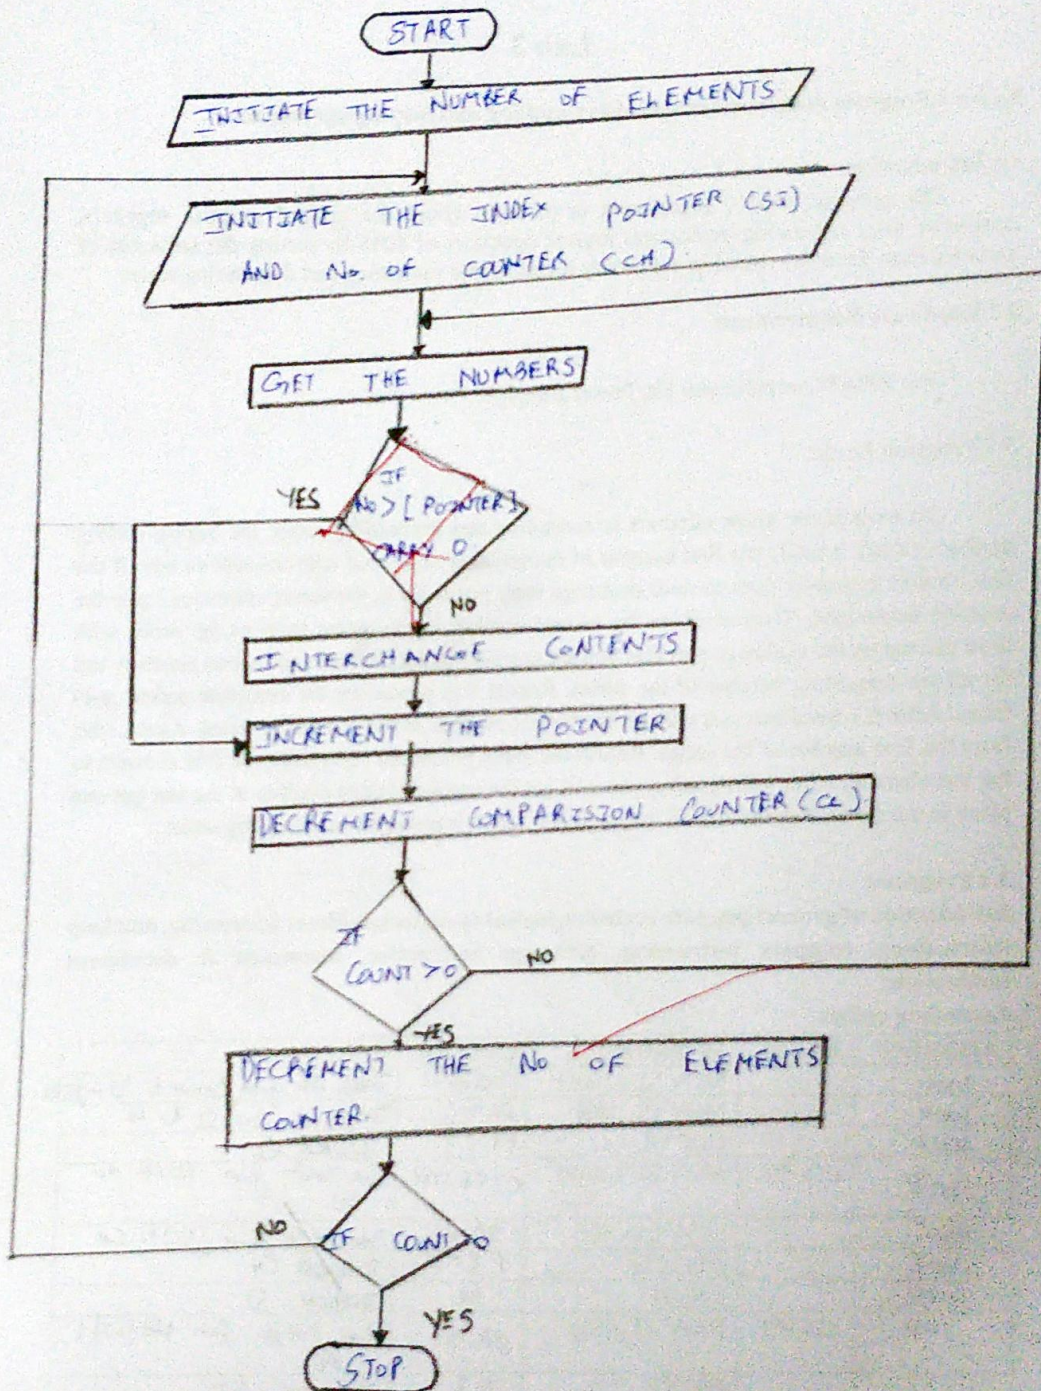 START
INITIATE THE NUMBER OF ELEMENTS
INITIATE THE INDEX POINTER (SI)
AND No. OF COUNTER (CH)
GET THE NUMBERS
IF
No > [POINTER]
CARRY 0
YES
NO
INTERCHANGE CONTENTS
INCREMENT THE POINTER
DECREMENT COMPARISION COUNTER (CL)
IF
COUNT > 0
NO
YES
DECREMENT THE NO OF ELEMENTS
COUNTER.
IF COUNT > 0
NO
YES
STOP